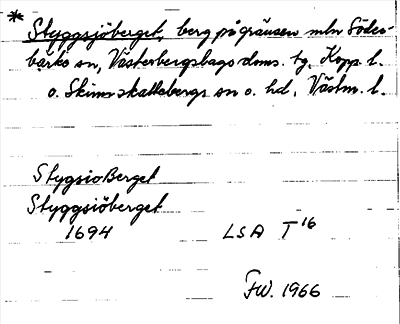 * Styggsjöberget, berg på gränsen mln Söder-
bärke sn, Västerbergslags doms. tg, Kopp. l.
o. Skinnskattebergs sn o. hd, Västm. l.
StygsioBerget
Styggsiöberget
1694 LSA T16
FW. 1966